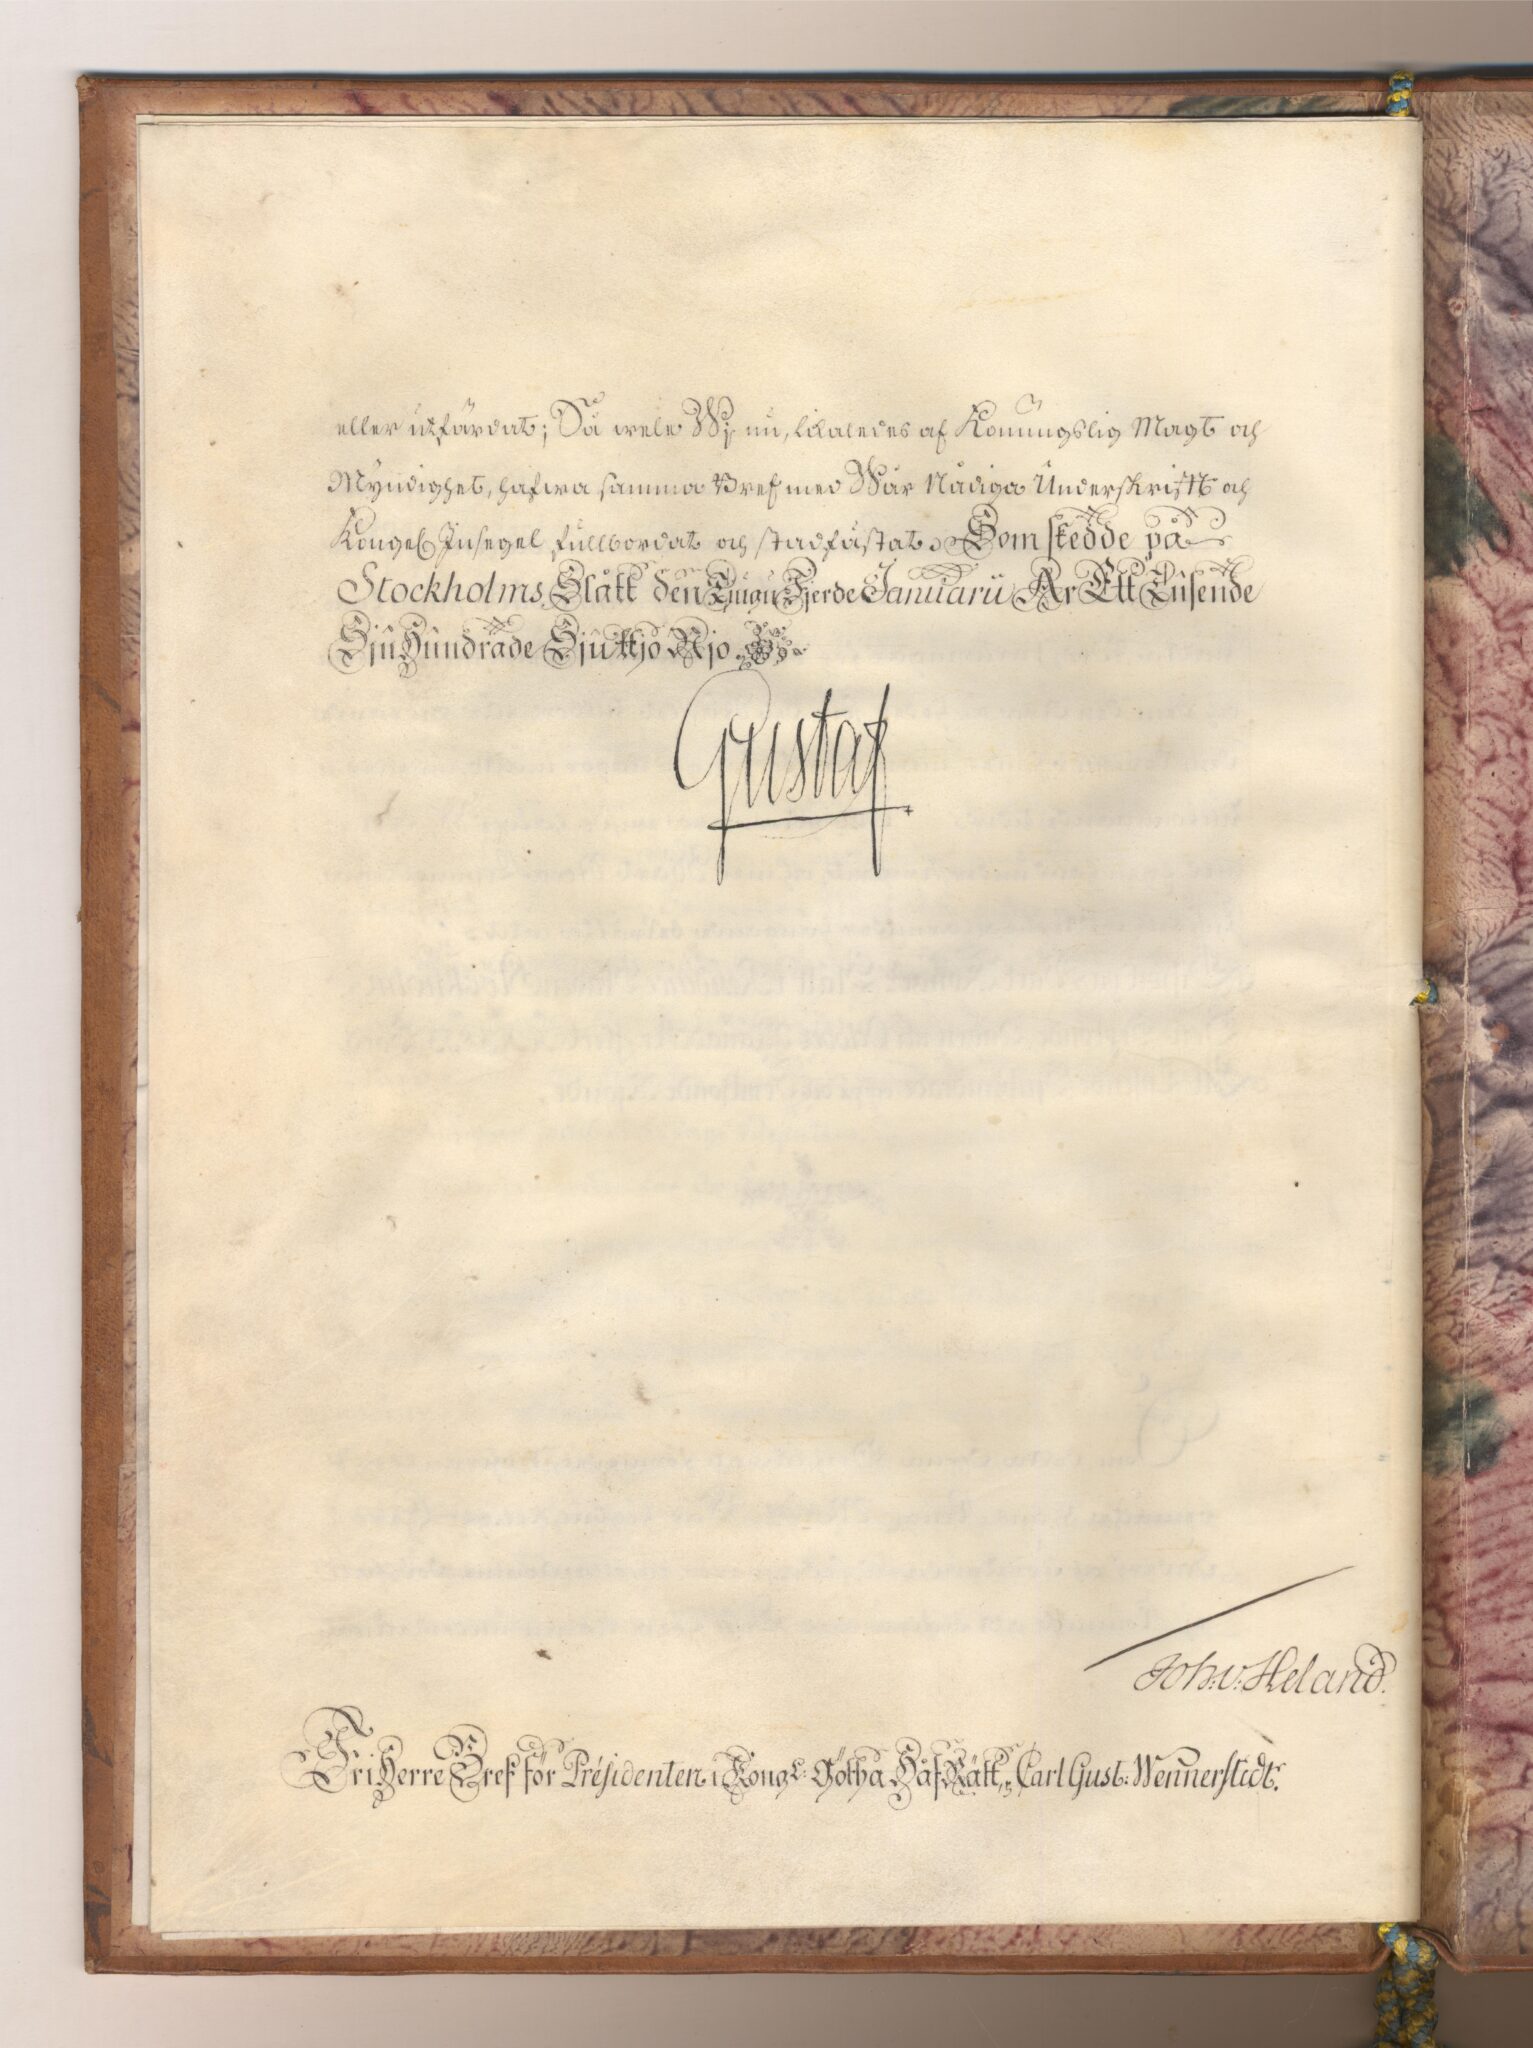 eller utfärdat; Då wele Wj nu, likaledes af Konungslig Magt och
Myndighet, hafwa samma Bref med Wår Nådiga Underskrifft och
Kongel Insegel fullbordat och stadfästat. Som skedde på
Stockholms Slått den Tiugu Fjerde Januarii År Ett Tusende
Sju Hundrade Sjuttjo Njo
Gustaf
Joh: v: Heland.
Fri Herre Bref för Præsidenten i Kongl: Götha Håf Rätt, Carl Gust: Wennerstedt.